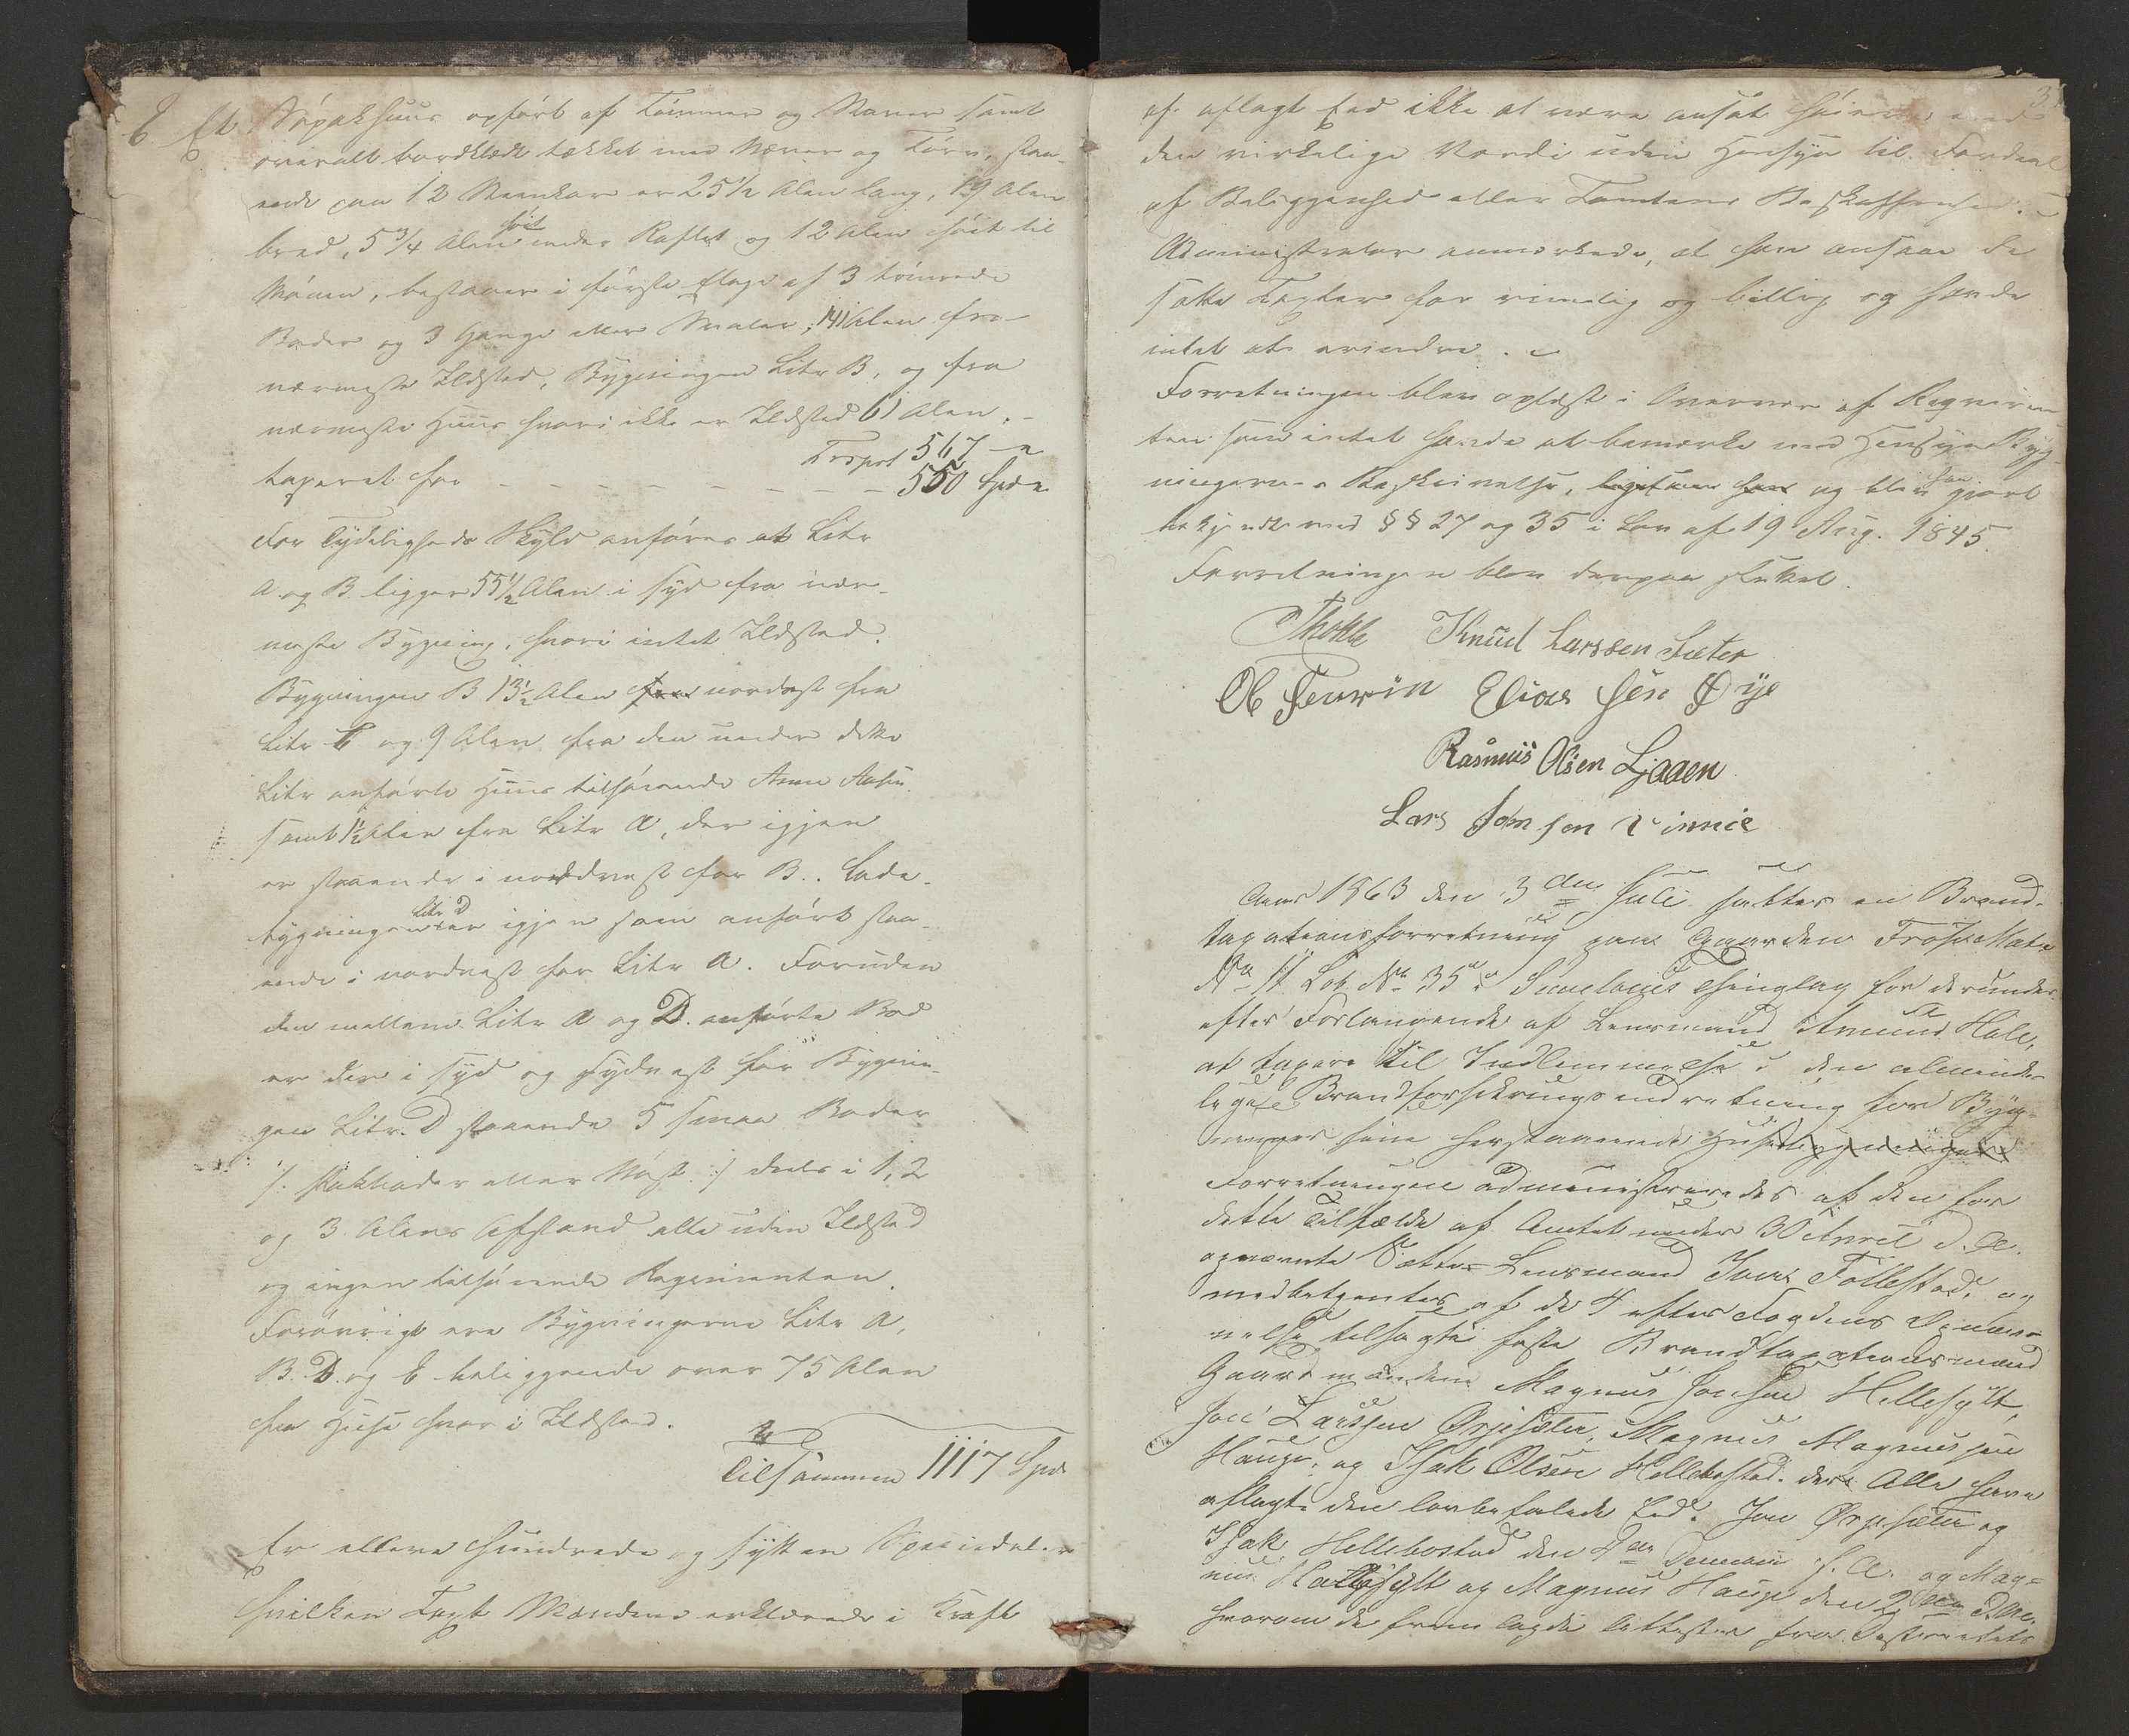 E Et Söpakhuus opfört af Tömmer og Muur samt
overalt bordklædt tækket med Næver og Törv, staa-
ende paa 12 Steenkar er 25 1/2 Alen lang, 19 Alen
bred, 5 3/4 Alen höit under Raftet og 12 Alen höit til
Mönen, bestaaer i förste Etage af 3 tömrede
Boder og 3 Gange eller Svaler, 141 Alen fra
nærmeste Ildsted, Bygningen Litr B, og fra
nærmeste Huus hvori ikke er Ildsted 61 Alen.-
Trspt 567 -
taxeret for - - - - - - - - 550 Spd
For Tydeligheds Skyld anföres at Litr
A og B ligger 55 1/2 Alen i Syd fra nær-
meste Bygning, hvori intet Ildsted.
Bygningen B 13 1/2 Alen fra nordost fra
Litr E og 9 Alen fra den under dette
Litr anförte Huus tilhörende Anne
samt 1 1/2 Alen fra Litr A, der igjen
er staaende i nordvest for B.. Lade-
bygningen Litr D er igjen som anfört staa-
ende i nordvest for Litr A. Foruden
den mellem Litr A og D. anförte Bod
er der i Syd og Sydvest for Bygnin-
gen Litr. D staaende 5 smaa Boder
/: Pakboder eller Nöst :/ deels i 1, 2
og 3 Alens Afstand alle uden Ildsted
og ingen tilhörende Reqvirenten.
Forövrigt ere Bygningerne Litr A,
B. D. og E beliggende over 75 Alen
fra Huse hvor i Ildsted.
Tilsammen 1117 Spd
Er elleve hundrede og sytten Speciedaler
hvilken Taxt Mændene erklærede i Kraft
3
af aflagt Eed ikke at være ansat höiere end
den virkelige Værdi uden Hensyn til Fordeel
af Beliggenhed eller Tomtens Beskaffenhed. -
Administrator anmærkede, at han ansaae de
satte Taxter for rimelig og billig og havde
intet at erindre. -
Forretningen blev oplæst i Overvær af Reqviren-
ten som intet havde at bemærke med Hensyn Byg-
ningernes Beskrivelse, og blev han gjort
bekjendt med §§ 27 og 35 i Lov af 19 Aug. 1845.
Forretningen blev derpaa sluttet.
Knud Larssen Sæter
Elias
Rasmus Olsen Ljøaen
Lars Jon sen Vinnie
Anno 1863 den 3 die Juli sattes en Brand-
taxationsforretning paa Gaarden Frøst Mat.
No 11 Lob. No 35 a i Sunelvens Thinglag for derunder
efter Forlangende af Lensmand Amund Hole,
at taxere til Indlemmelse i den alminde-
lige Brandforsikringsindretning for Byg-
ninger sine herstaaende Huse
Forretningen administreredes af den for
dette Tilfælde af Amtet under 30 April d. A.
opnævnte Sætte- Lensmand Iver Follestad, og
medbetjentes af de 4 efter Fogdens Opnæv-
nelse tilsagte faste Brandtaxationsmænd
Gaardmændene Magnus Jonsen Hellesylt,
Jon Larssen Ørjesæter, Magnus Magnussen
Hauge, og Isak Olsen Hellebostad. der Alle have
aflagt den lovbefalede Eed. Jon Ørjesæter og
Isak Hellebostad den og Mag-
nus Hellesylt og Magnus Hauge den
hvorom de fremlagde Attester fra